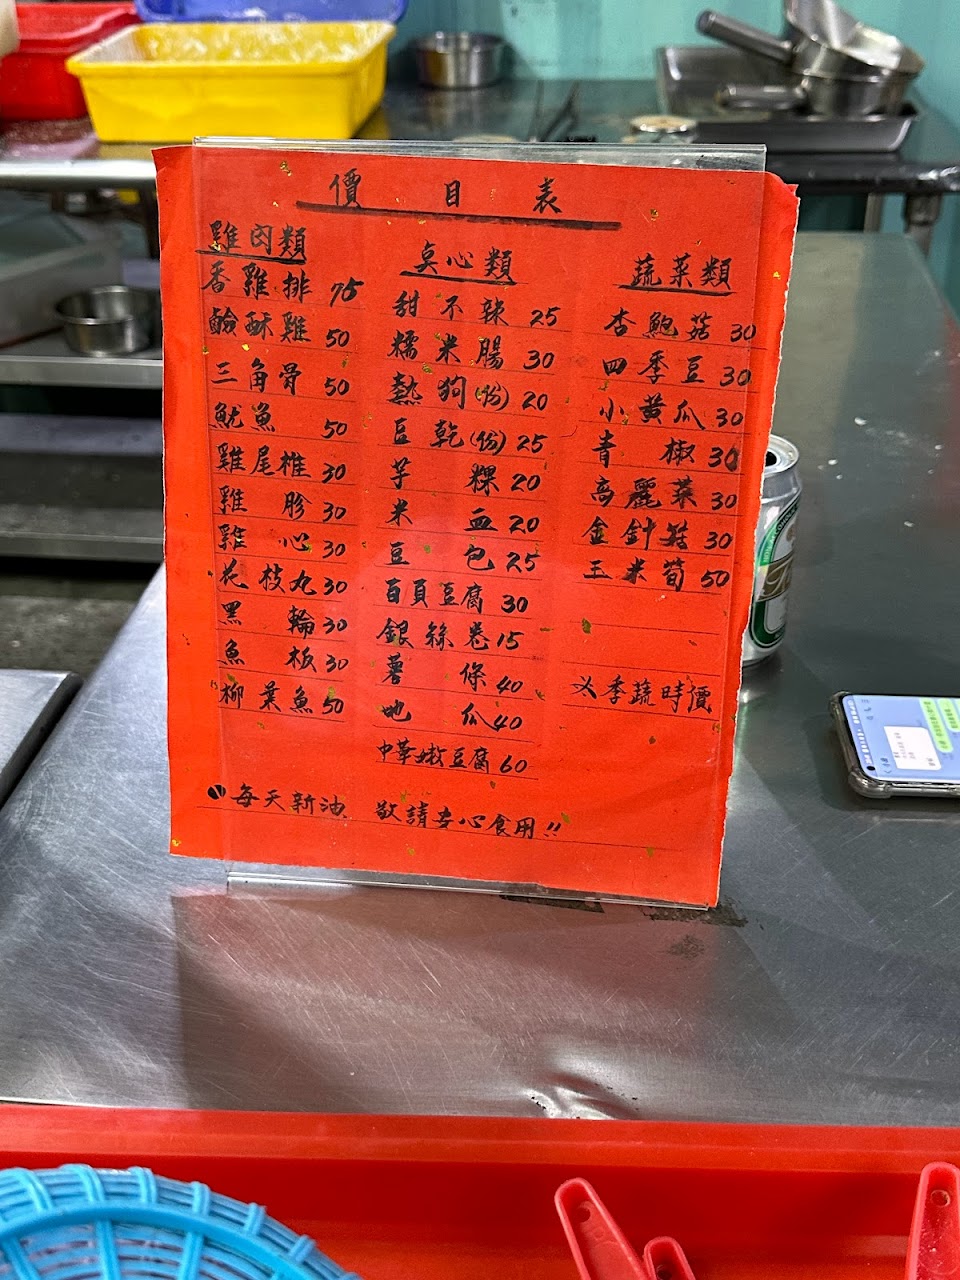 價目表
雞肉類
香雞排 75
鹹酥雞 50
三角骨 50
魷魚 50
雞尾椎 30
雞胗 30
雞心 30
花枝丸 30
黑輪 30
魚板 30
柳葉魚 50
點心類
甜不辣 25
糯米腸 30
熱狗(份) 20
豆乾(份) 25
芋粿 20
米血 20
豆包 25
百頁豆腐 30
銀絲卷 15
薯條 40
地瓜 40
中華嫩豆腐 60
蔬菜類
杏鮑菇 30
四季豆 30
小黃瓜 30
青椒 30
高麗菜 30
金針菇 30
玉米筍 50
季蔬時價
每天新油 敬請安心食用!!